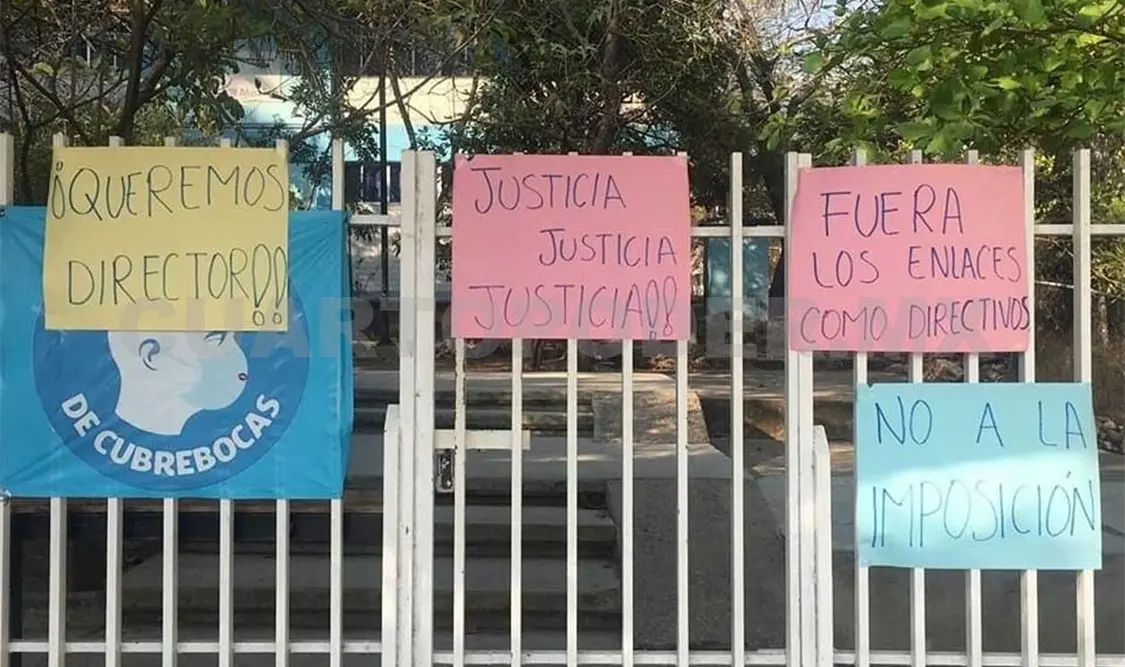 ¡¡QUEREMOS
DIRECTOR!!
JUSTICIA
JUSTICIA
JUSTICIA!!
FUERA
LOS ENLACES
COMO DIRECTIVOS
NO A LA
IMPOSICIÓN
DE CUBREBOCAS
CUARTOPODER.MX